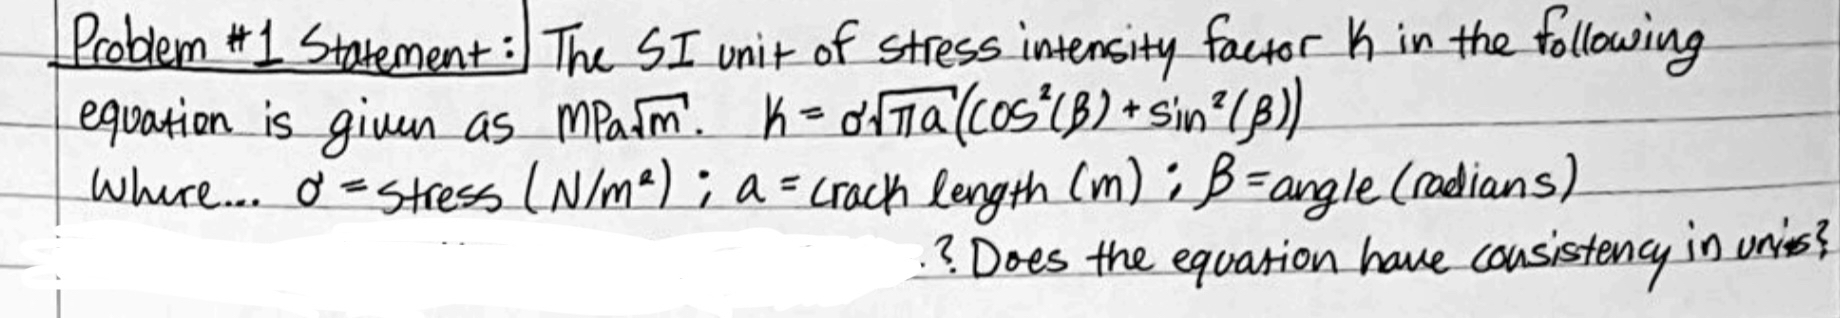 Problem #1 Statement: The SI unit of stress intensity factor K in the following
equation is given as MPa√m. K = σ√πa (cos²(β) + sin²(β))
Where... σ = stress (N/m²) ; a = crack length (m) ; β = angle (radians)
.? Does the equation have consistency in units?